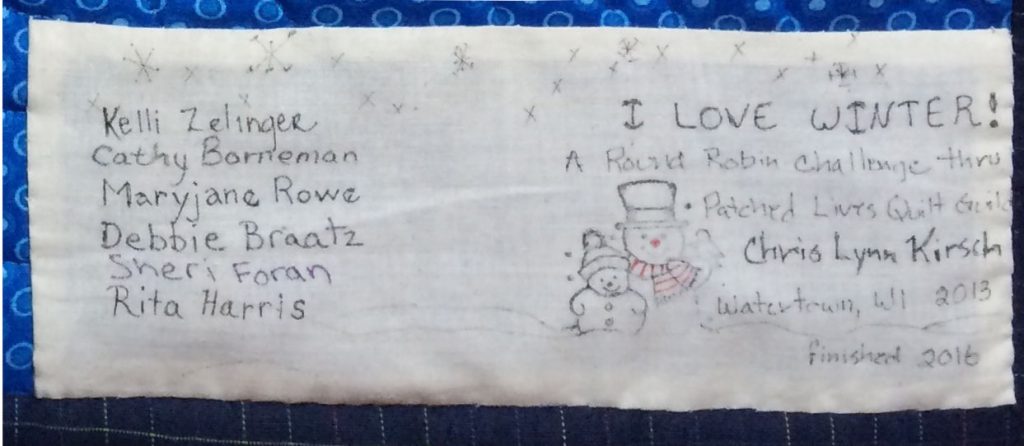 Kelli Zelinger
Cathy Borneman
Maryjane Rowe
Debbie Braatz
Sheri Foran
Rita Harris
I LOVE WINTER!
A Round Robin Challenge thru
Patched Lives Quilt Guild
Chris Lynn Kirsch
Watertown, WI 2013
finished 2016